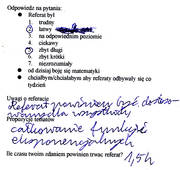 Odpowiedz na pytania:
● Referat był
1. trudny
2. łatwy
3. na odpowiednim poziomie
4. ciekawy
5. zbyt długi
6. zbyt krótki
7. niezrozumiały
● od dzisiaj boję się matematyki
● chciałbym/chciałabym aby referaty odbywały się co tydzień
Uwagi o referacie
Referat powinien być dostoso-
wany dla wszystkich
Propozycje tematów
całkowanie funkcji
eksponencjalnych
Ile czasu twoim zdaniem powinien trwać referat? 1,5h